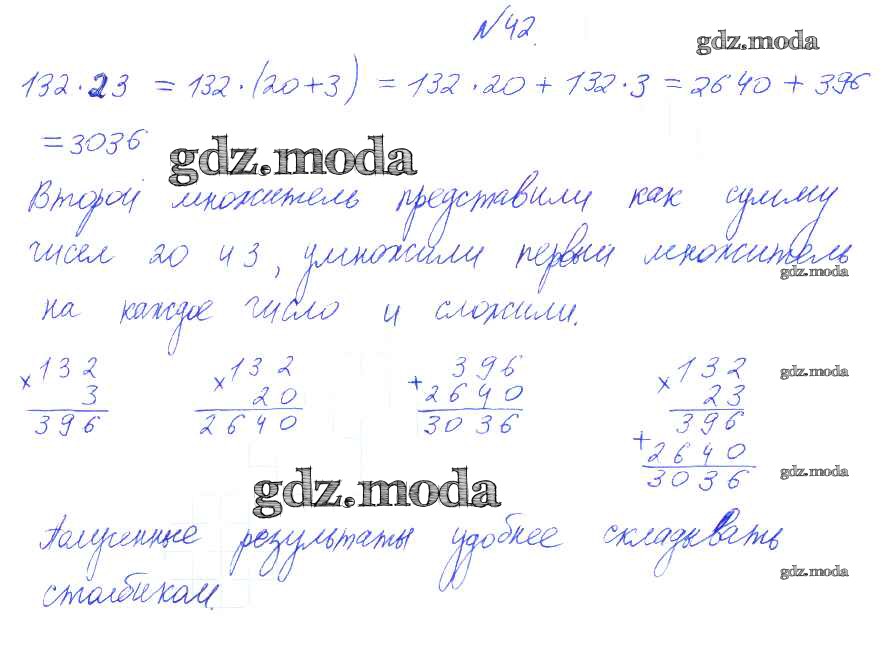 №42.
gdz.moda
132·23 = 132·(20+3) = 132·20 + 132·3 = 2640 + 396
= 3036
gdz.moda
Второй множитель представили как сумму
чисел 20 и 3, умножили первый множитель
gdz.moda
на каждое число и сложили.
× 132
3
396
× 132
20
2640
+ 396
2640
3036
× 132
23
396
+ 2640
3036
gdz.moda
gdz.moda
gdz.moda
Полученные результаты удобнее складывать
столбиком.
gdz.moda